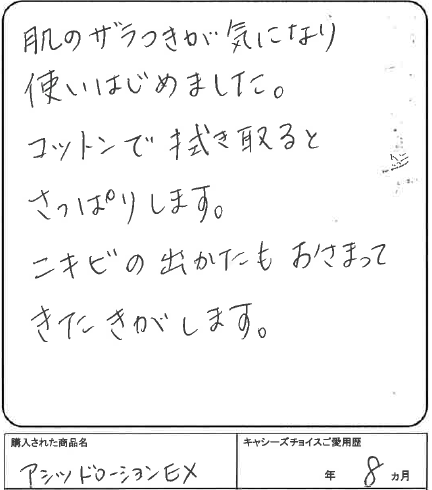 肌のザラつきが気になり
使いはじめました。
コットンで拭き取ると
さっぱりします。
ニキビの出かたもおさまって
きたきがします。
購入された商品名
アシッドローションEX
キャシーズチョイスご愛用歴
年 8 ヵ月